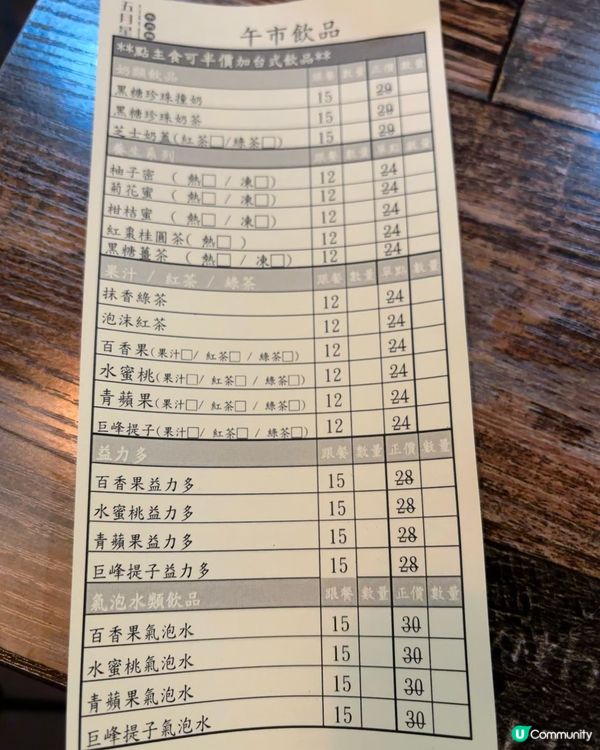 五月星
午市飲品
**點主食可半價加台式飲品**
奶類飲品 跟餐 數量 正價 數量
黑糖珍珠撞奶 15 29
黑糖珍珠奶茶 15 29
芝士奶蓋(紅茶□/綠茶□) 15 29
養生系列 跟餐 數量 單點 數量
柚子密 ( 熱□ / 凍□) 12 24
菊花蜜 ( 熱□ / 凍□) 12 24
柑桔蜜 ( 熱□ / 凍□) 12 24
紅棗桂圓茶( 熱□ ) 12 24
黑糖薑茶 ( 熱□ / 凍□) 12 24
果汁 / 紅茶 / 綠茶 跟餐 數量 單點 數量
抹香綠茶 12 24
泡沫紅茶 12 24
百香果(果汁□/ 紅茶□ / 綠茶□) 12 24
水蜜桃(果汁□/ 紅茶□ / 綠茶□) 12 24
青蘋果(果汁□/ 紅茶□ / 綠茶□) 12 24
巨峰提子(果汁□/ 紅茶□ / 綠茶□) 12 24
益力多 跟餐 數量 正價 數量
百香果益力多 15 28
水蜜桃益力多 15 28
青蘋果益力多 15 28
巨峰提子益力多 15 28
氣泡水類飲品 跟餐 數量 正價 數量
百香果氣泡水 15 30
水蜜桃氣泡水 15 30
青蘋果氣泡水 15 30
巨峰提子氣泡水 15 30
U Community